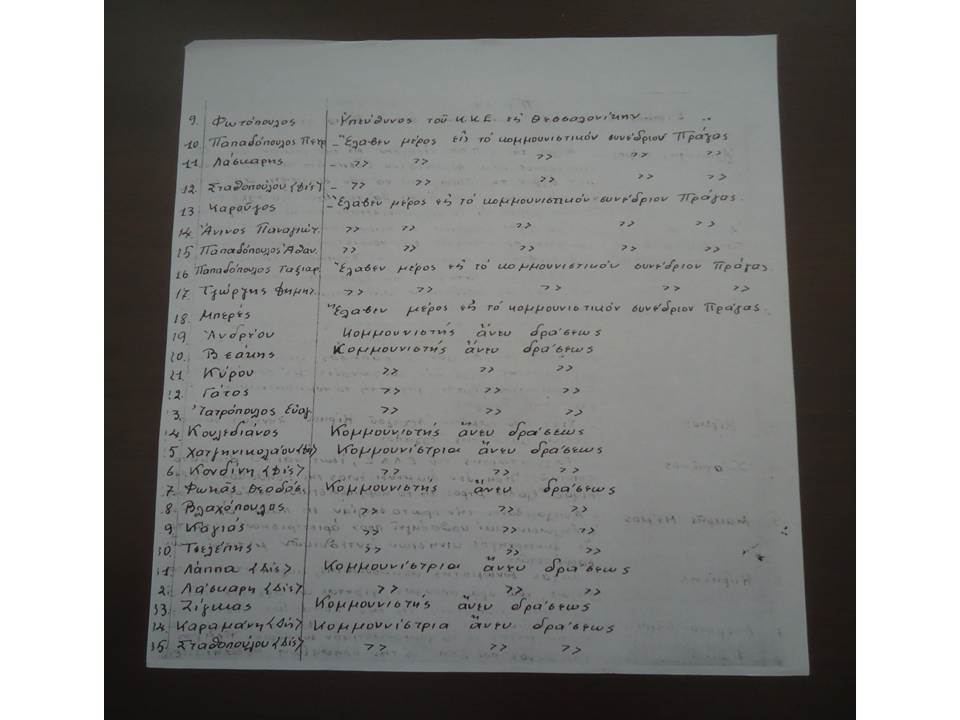 9. Φωτόπουλος Ὑπεύθυνος τοῦ Κ.Κ.Ε. εἰς Θεσσαλονίκην
10. Παπαδόπουλος Πετρ. - Ἔλαβεν μέρος εἰς τό κομμουνιστικόν συνέδριον Πράγας
11. Λάσκαρης - >> >> >> >> >>
12. Σταθοπούλου (Δίς) - >> >> >> >> >>
13 Καροῦζος - Ἔλαβεν μέρος εἰς τό κομμουνιστικόν συνέδριον Πράγας.
14. Ἄνινος Παναγιώτ. >> >> >> >> >>
15 Παπαδόπουλος Ἀθαν. >> >> >> >> >>
16 Παπαδόπουλος Ταξιαρ. Ἔλαβεν μέρος εἰς τό κομμουνιστικόν συνέδριον Πράγας
17. Τζιώρτζης Δημητ. >> >> >> >> >>
18. Μπερές Ἔλαβεν μέρος εἰς τό κομμουνιστικόν συνέδριον Πράγας
19 Ἀνδρέου Κομμουνιστής ἄνευ δράσεως
20. Βεάκης Κομμουνιστής ἄνευ δράσεως
21 Κύρου >> >> >>
2. Γάτος >> >> >>
3. Ἰατρόπουλος Εὐαγ. >> >> >>
4. Κουλεδιάνος Κομμουνιστής ἄνευ δράσεως
5 Χατζηνικολάου (Δίς) Κομμουνίστριαι ἄνευ δράσεως
6. Κονδίνη (Δίς) >> >> >>
7. Φωκᾶς Θεοδόσ. Κομμουνιστής ἄνευ δράσεως
8. Βλαχόπουλος >> >> >>
9. Καγιάς >> >> >>
30. Τσελέπης >> >> >>
31. Λάππα (Δίς) Κομμουνίστριαι ἄνευ δράσεως
2. Λάσκαρη (Δίς) >> >> >>
33. Ζίγκας Κομμουνιστής ἄνευ δράσεως
34. Καραμάνη (Δίς) Κομμουνίστρια ἄνευ δράσεως
35. Σταθοπούλου (Δίς) >> >> >>